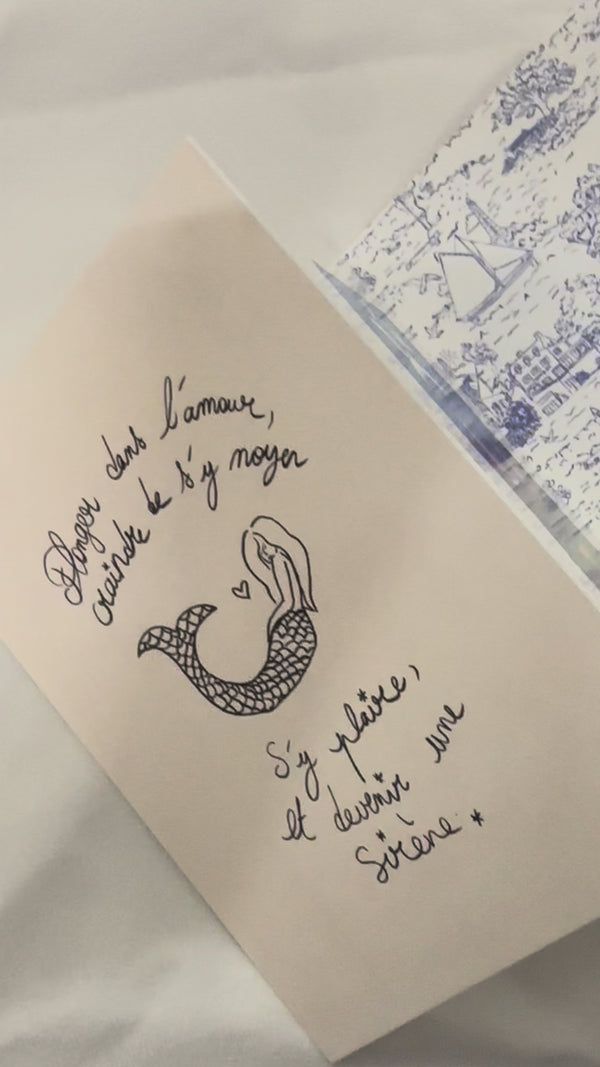 Plonger dans l'amour,
craindre de s'y noyer
S'y plaire,
et devenir une
Sirène.*